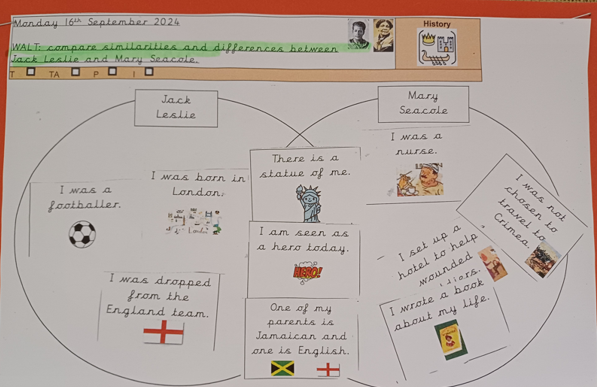 Monday 16th September 2024
History
WALT: compare similarities and differences between
Jack Leslie and Mary Seacole.
T TA P I
Jack
Leslie
Mary
Seacole
I was a
footballer.
I was born in
London.
I was dropped
from the
England team.
There is a
statue of me.
I am seen as
a hero today.
HERO!
One of my
parents is
Jamaican and
one is English.
I was a
nurse.
I was not
chosen to
travel to
Crimea.
I set up a
hotel to help
wounded
I wrote a book
about my life.